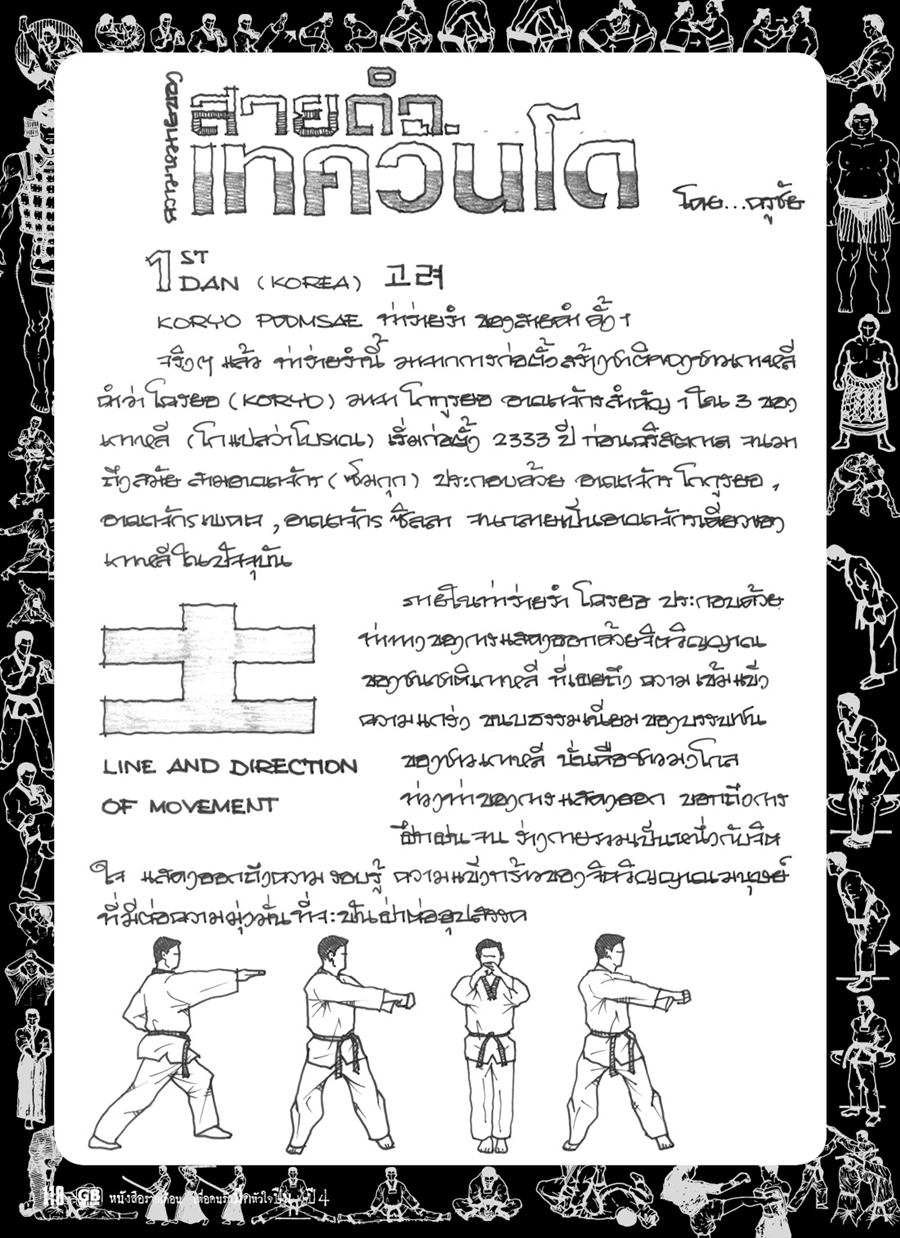 สายดำ
เทควันโด
โดย...ครูชัย
1ST DAN (KOREA) 고려
KORYO POOMSAE ท่าร่ายรำ ของสายดำ ดั้ง 1
จริงๆ แล้ว ท่าร่ายรำนี้ มาจากการก่อตั้งสร้างชาติของชาวเกาหลี
คำว่า โครยอ (KORYO) มาจาก โกกูรยอ อาณาจักรสำคัญ 1 ใน 3 ของ
เกาหลี (โกแปลว่าโบราณ) เริ่มก่อตั้ง 2333 ปี ก่อนคริสตกาล จนมา
ถึงสมัย สามอาณาจักร (ซัมกุก) ประกอบด้วย อาณาจักร โกกูรยอ,
อาณาจักรแพคเจ, อาณาจักร ซิลลา จนกลายเป็นอาณาจักรเดียวของ
เกาหลีในปัจจุบัน
ภายในท่าร่ายรำ โครยอ ประกอบด้วย
ท่าทางของการแสดงออกด้วยจิตวิญญาณ
ของชนชาติเกาหลี ที่เผยถึง ความเข้มแข็ง
ความแกร่ง ขนบธรรมเนียมของบรรพชน
ของชาวเกาหลี นั่นคือชาวมงโกล
LINE AND DIRECTION
OF MOVEMENT
ท่วงท่าของการแสดงออก บอกถึงการ
ฝึกฝนจน ร่างกายรวมเป็นหนึ่งกับจิต
ใจ แสดงออกถึงความรอบรู้ ความแข็งกร้าวของจิตวิญญาณมนุษย์
ที่มีต่อความมุ่งมั่นที่จะฟันฝ่าต่ออุปสรรค
118 GB หนังสือรายเดือน เพื่อคนรัก ปี 4